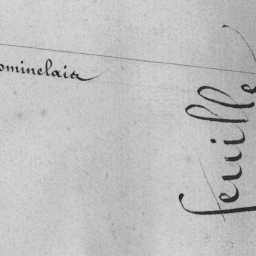 ominelais
feuille